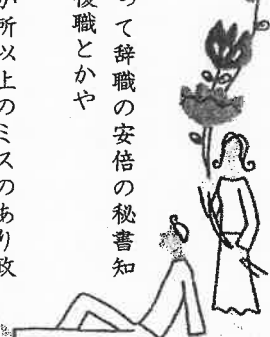 って辞職の安倍の秘書知
職とかや
所以上のミスのあり政